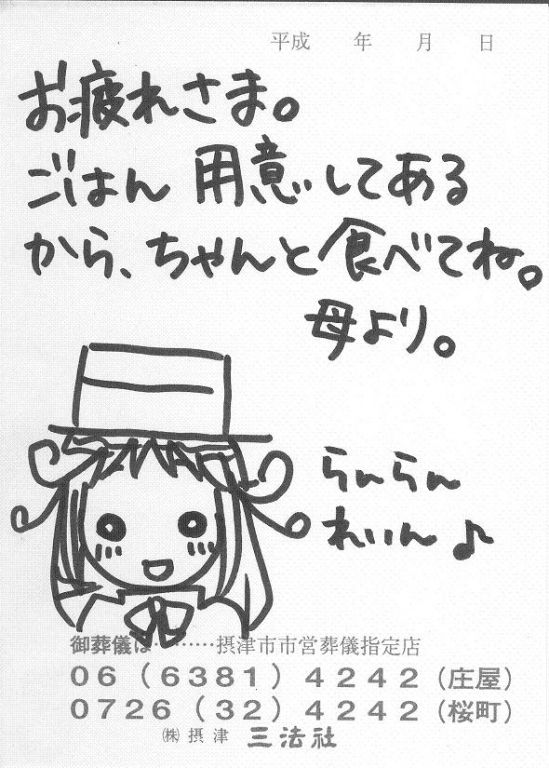 平成　年　月　日
お疲れさま。
ごはん 用意してある
から、ちゃんと食べてね。
母より。
らんらん
れいん♪
御葬儀は………摂津市市営葬儀指定店
06（6381）4242（庄屋）
0726（32）4242（桜町）
㈱ 摂津 三法社